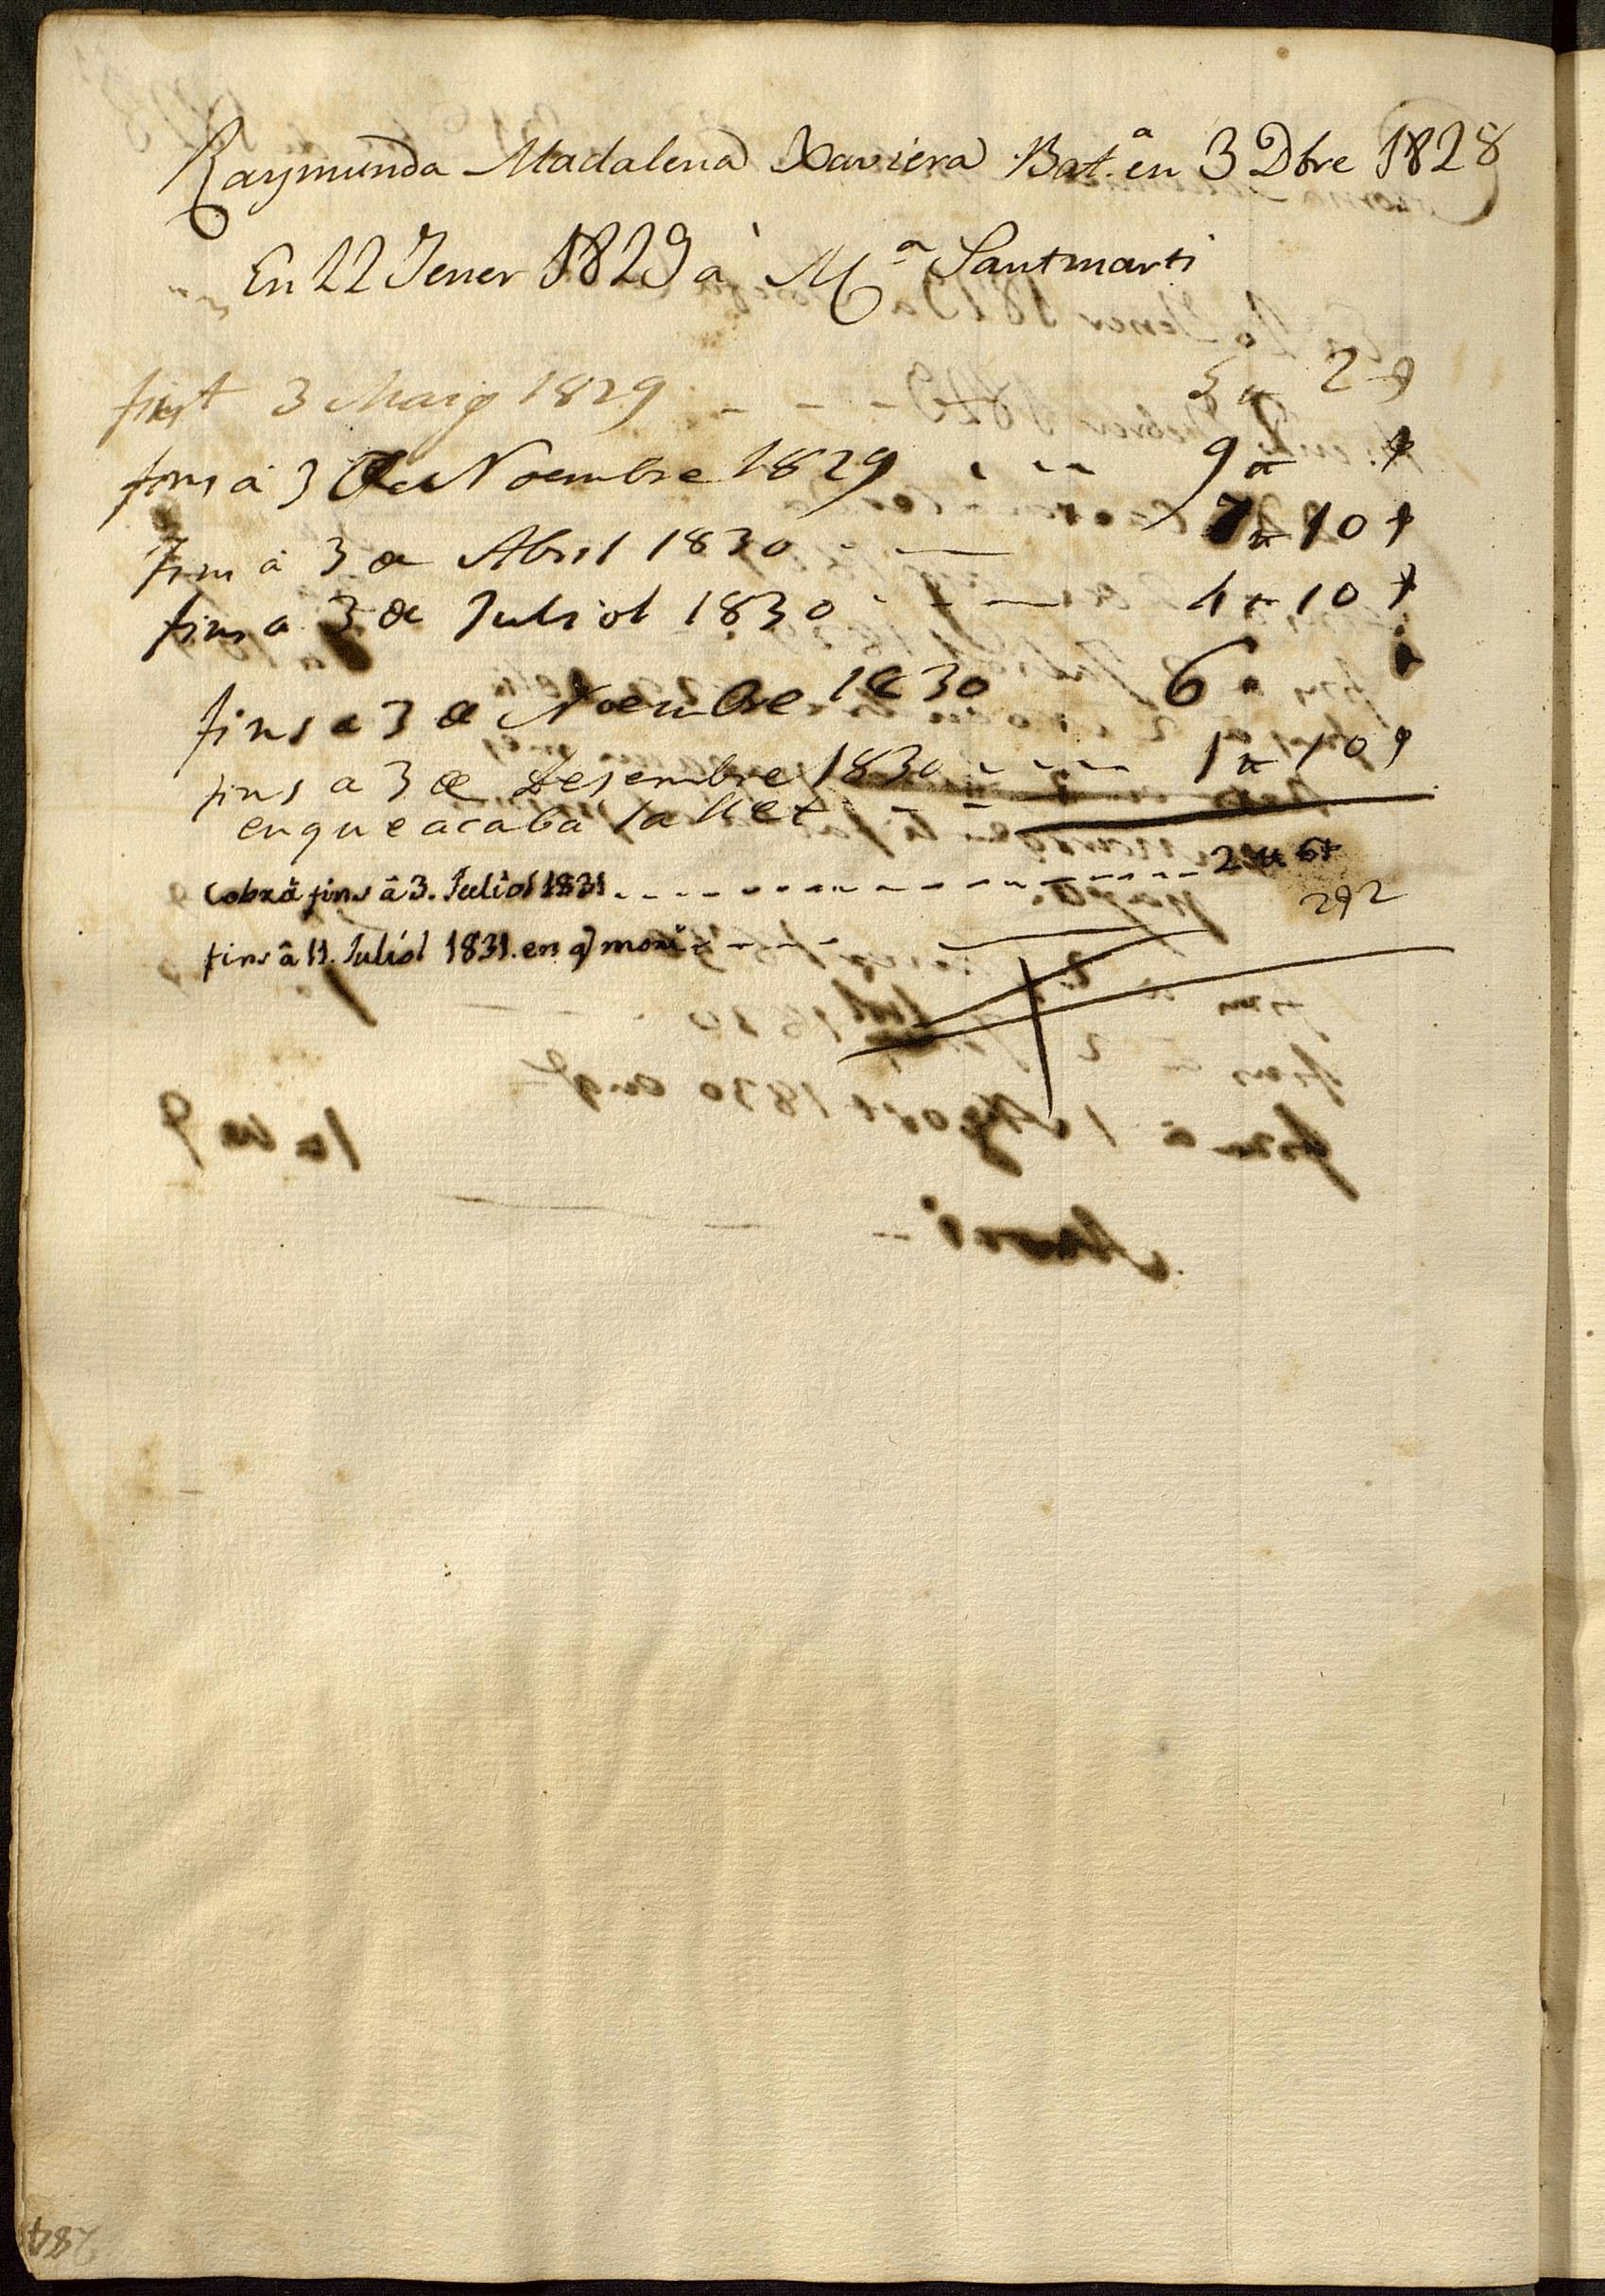 Raymunda Madalena Xaviera Bat.ª en 3 Dbre 1828
En 22 Jener 1829 à Mª Santmartí
3 Maig 1829 - - - - 5 " 2
fins á 3 de Noembre 1829 - - - 9 "
fins á 3 de Abril 1830 - — 7 " 10
fins a 3 de Juliol 1830 - - — 4 " 10
fins a 3 de Noembre 1830 6 "
fins a 3 de Desembre 1830 - - - - 1 " 10
en que acaba la llet - - -
Cobrá fins â 3. Juliol 1831 - - - - - - - - - -
292
fins â 11. Juliol 1831. en q morí - - - -